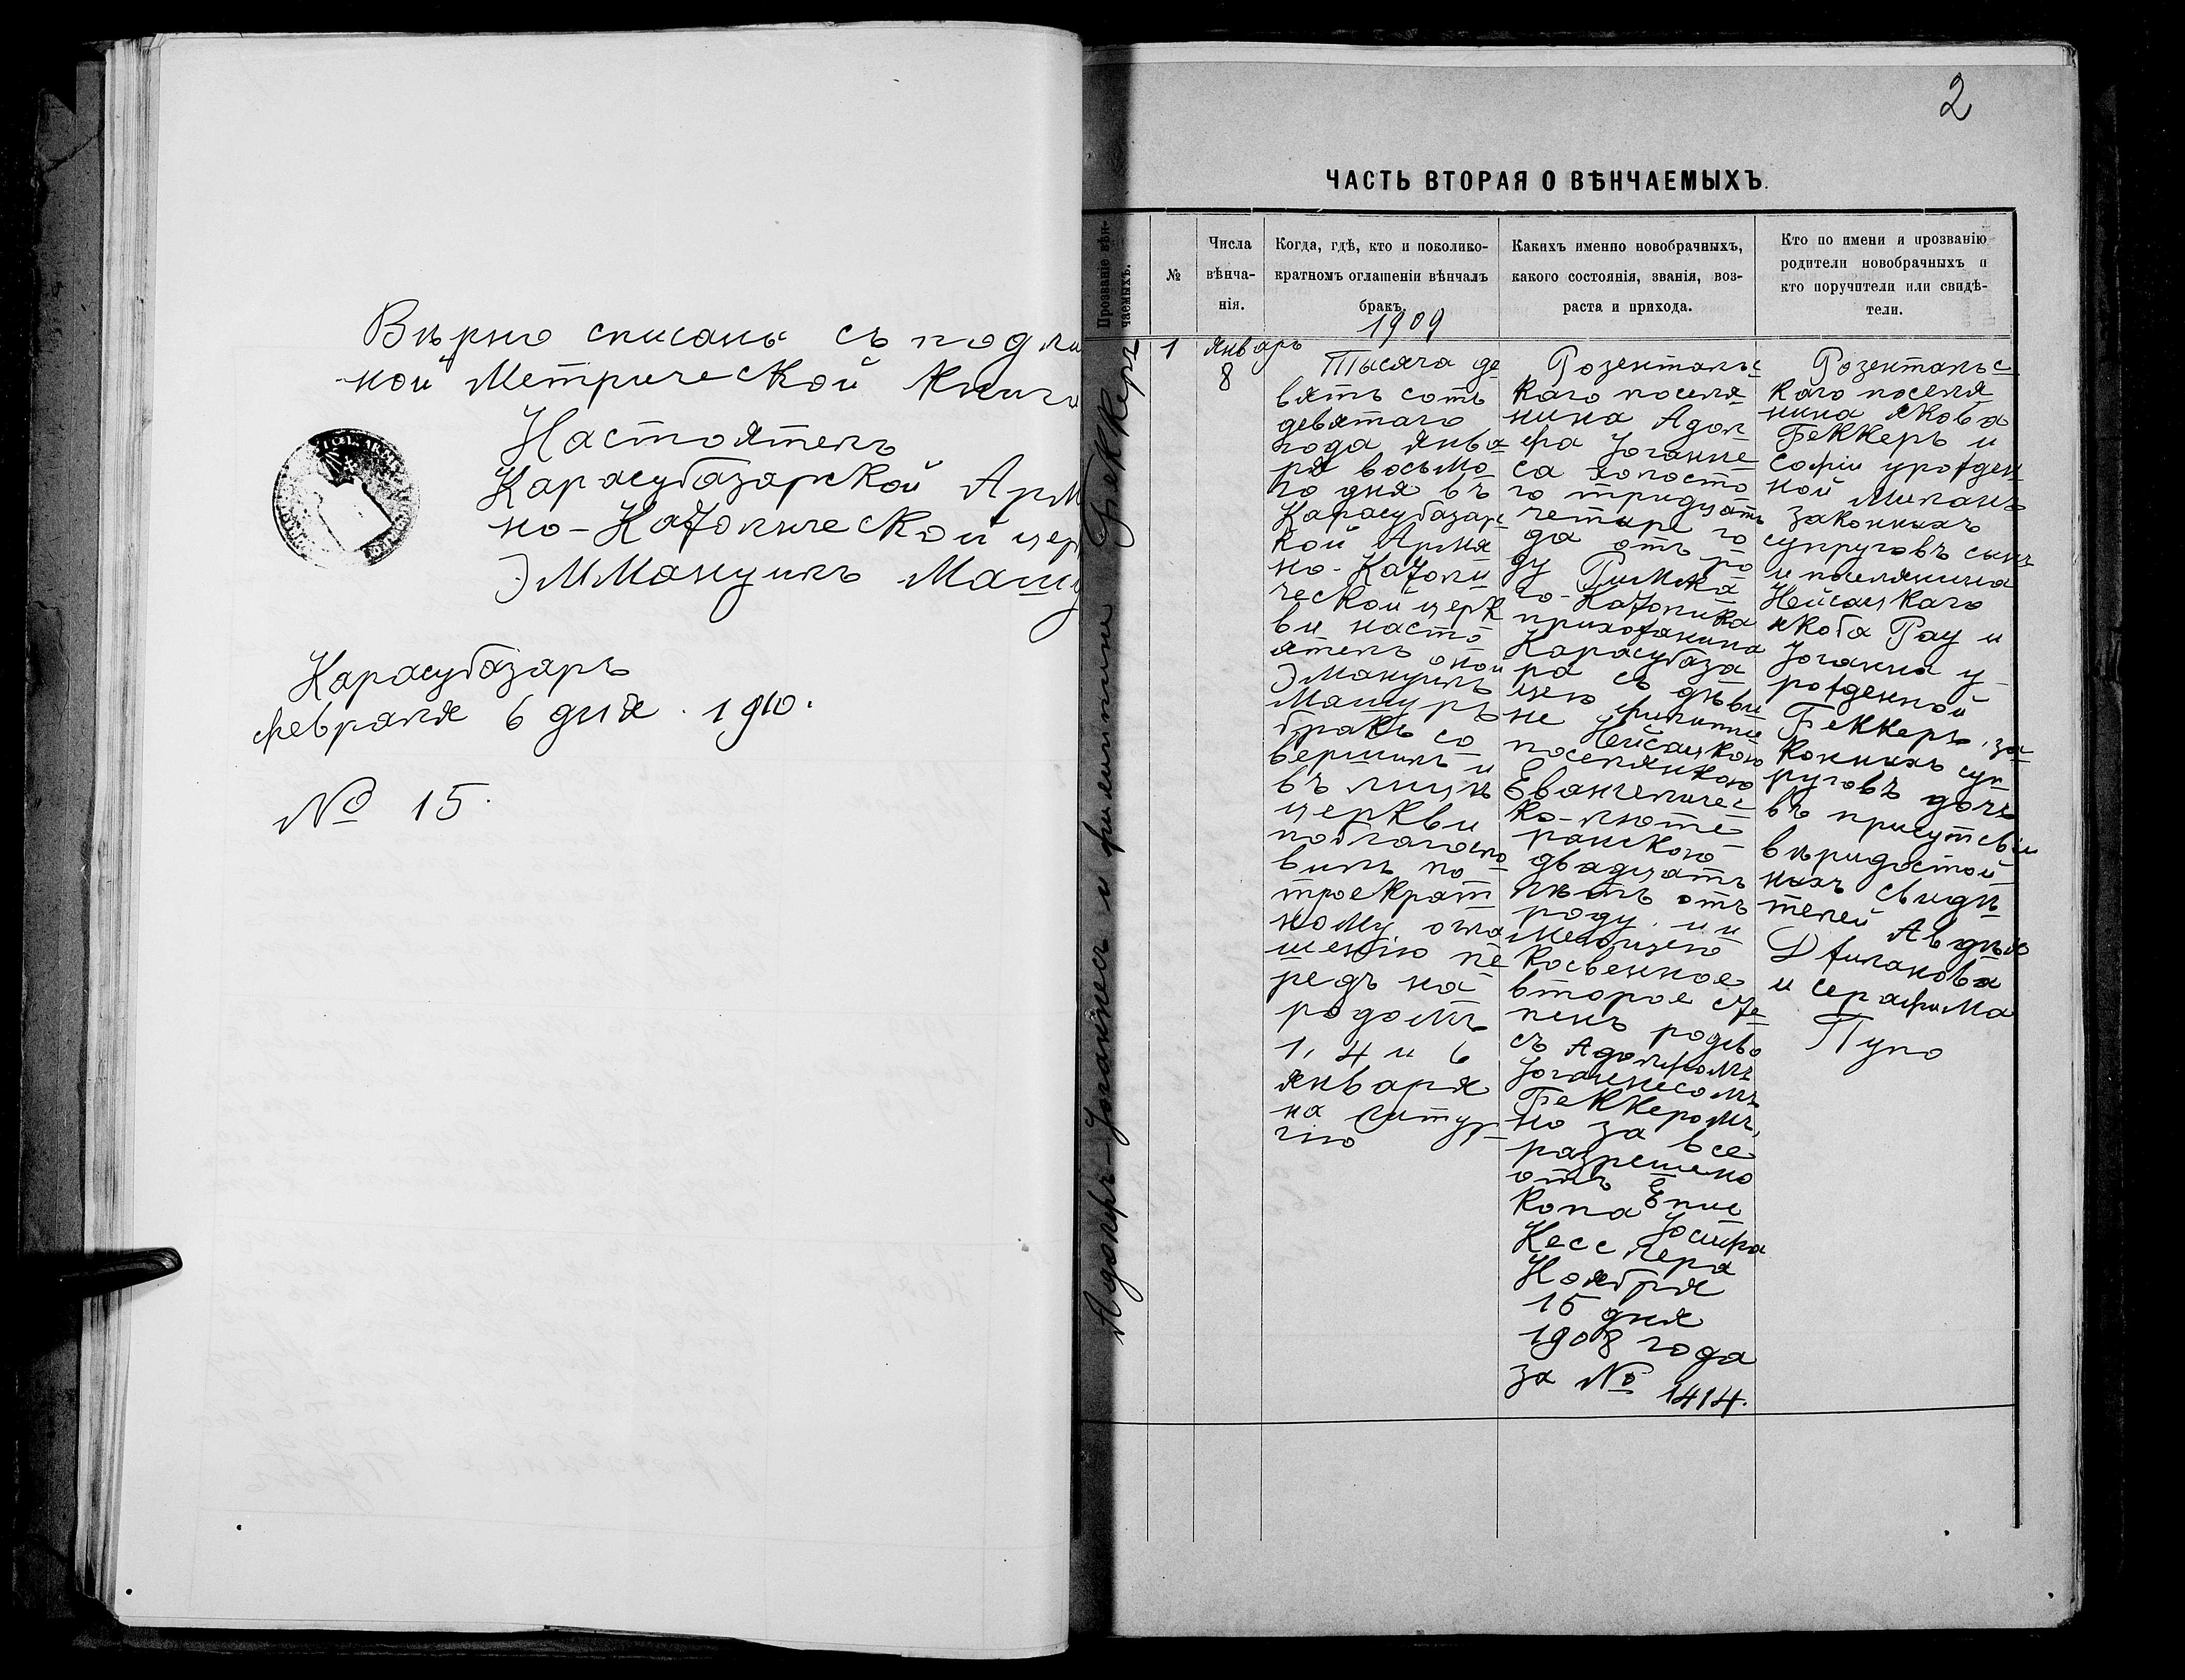 Вѣрно списано съ подли
ной Метрической Книги
Настоятель
Карасубазарской Арм
но-Католической цер
Эммануилъ Машу
Карасубазаръ
февраля 6 дня. 1910.
№ 15.
2
ЧАСТЬ ВТОРАЯ О ВѢНЧАЕМЫХЪ.
Прозваніе вѣн-
чаемыхъ.
№
Числа
вѣнча-
нія.
Когда, гдѣ, кто и поколико-
кратномъ оглашеніи вѣнчалъ
бракъ.
1909
Какихъ именно новобрачныхъ,
какого состоянія, званія, воз-
раста и прихода.
Кто по имени и прозванію
родители новобрачныхъ и
кто поручители или свидѣ-
тели.
Адольфъ-Іоганнесъ и Филиппина Беккеръ
1
Январь
8
Тысяча де
вять сотъ
девятаго
года Янва
ря восьмо
го дня въ
Карасубазарс
кой Армя
но-Католи
ческой церк
ви насто
ятель оной
Эмануилъ
Машуръ
бракъ со
вершилъ и
въ лицѣ
церкви
поблагосло
вилъ по
троекрат
ному огла
шенію пе
редъ на
родомъ
1, 4 и 6
Января
на Литур
гію
Розентальс
каго поселя
нина Адоль
фа Іоганне
са холосто
го тридцать
четыре го
да отъ ро
ду Римска
го-Католика
прихожанина
Карасубаза
ра съ дѣви
цею Филиппи
не Нейсацкою
поселянкою
Евангеличес
ко-люте
ранскою
двадцать
лѣтъ отъ
роду, и и
меющею
косвенное
второе сте
пень родство
съ Адольфомъ
Іоганнесомъ
Беккеромъ,
но за все
разрешено
отъ Епис
копа Іосифа
Кесслера
Ноября
15 дня
1908 года
за № 1414.
Розентальс
каго поселя
нина Якова
Беккеръ и
Софіи урожден
ной Миланъ
законныхъ
супруговъ сынъ
и поселянина
Нейсацкаго
Якова Рау и
Іоганна у-
рожденной
Беккеръ, за
конныхъ суп
руговъ дочь
въ присутствіи
вѣридостой
ныхъ свидѣ
телей Авдѣя
Джиганова
и Серафима
Пупо